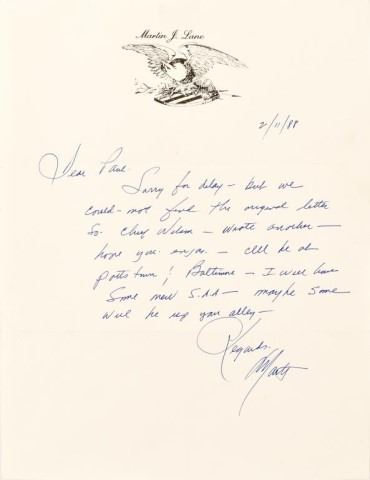 Martin J. Lane
2/11/88
Dear Paul.
Sorry for delay - but we
could-not find the original letter
So- Chuy Wilson - wrote another -
hope you enjoy. - I'll be at
Pottstown & Baltimore - I will have
Some new S.A.A - maybe some
will be up your alley -
Regards.
Marty